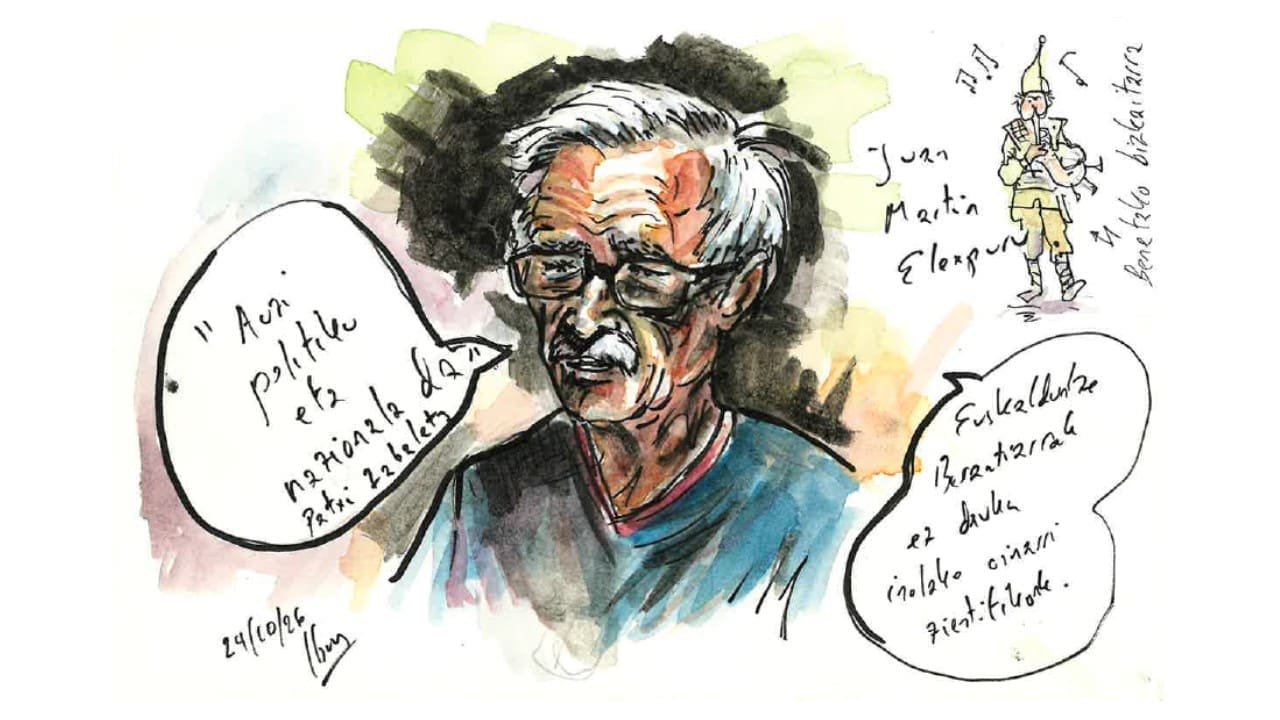 "Auzi
politiko
eta
nazionala da"
Patxi Zabaleta
Juan
Martin
Elexpuru
Benetako bizkaitarra
Euskalduntze
Berantiarrak
ez dauka
inolako oinarri
zientifikorik.
24/10/26